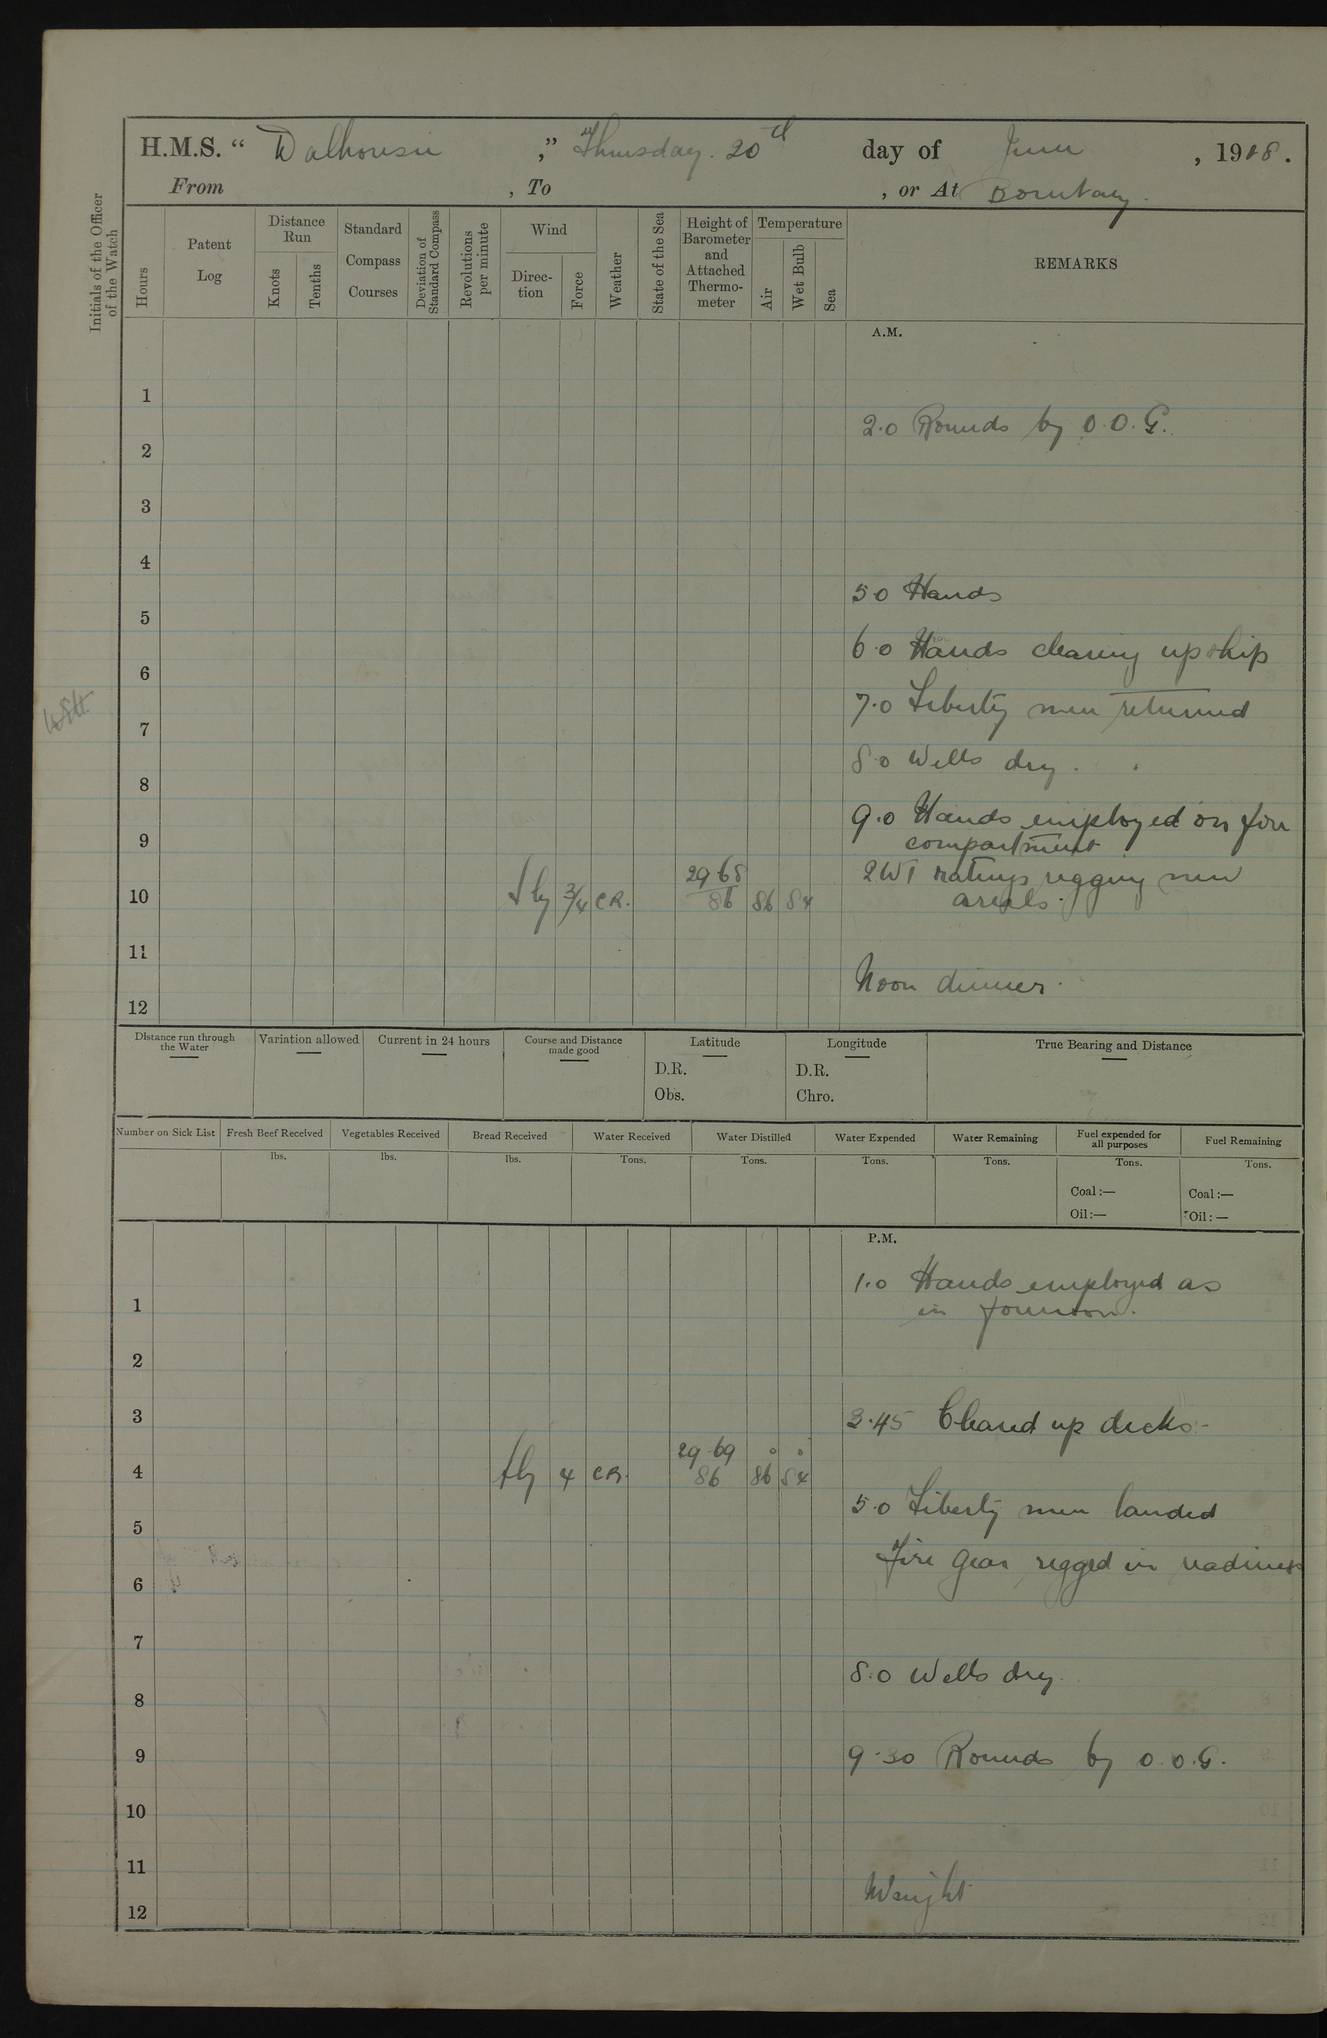 H.M.S. “ Dalhousie ,” Thursday. 20th day of June , 1918.
From , To , or At Bombay.
Initials of the Officer of the Watch
Hours
Patent Log
Distance Run
Knots
Tenths
Standard Compass Courses
Deviation of Standard Compass
Revolutions per minute
Wind
Direc-tion
Force
Weather
State of the Sea
Height of Barometer and Attached Thermo-meter
Temperature
Air
Wet Bulb
Sea
REMARKS
A.M.
1
2.0 Rounds by O.O.G.
2
3
4
5.0 Hands
5
6.0 Hands cleaning up ship
6
7.0 Liberty men returned
7
8.0 Wells dry.
8
9.0 Hands employed on fire
compartment
9
2 WT ratings rigging new
aerials.
10 Sly 3/4 CR. 29.68 86 86 84
11
Noon dinner.
12
Distance run through the Water
Variation allowed
Current in 24 hours
Course and Distance made good
Latitude
D.R.
Obs.
Longitude
D.R.
Chro.
True Bearing and Distance
Number on Sick List
Fresh Beef Received
lbs.
Vegetables Received
lbs.
Bread Received
lbs.
Water Received
Tons.
Water Distilled
Tons.
Water Expended
Tons.
Water Remaining
Tons.
Fuel expended for all purposes
Tons.
Coal:—
Oil:—
Fuel Remaining
Tons.
Coal:—
Oil:—
P.M.
1.0 Hands employed as
in forenoon.
1
2
3
3.45 Cleared up decks.
4 Sly 4 CR. 29.69 86 86 84
5.0 Liberty men landed
5
Fire gear rigged in readiness
6
7
8.0 Wells dry.
8
9.30 Rounds by O.O.G.
9
10
11
12